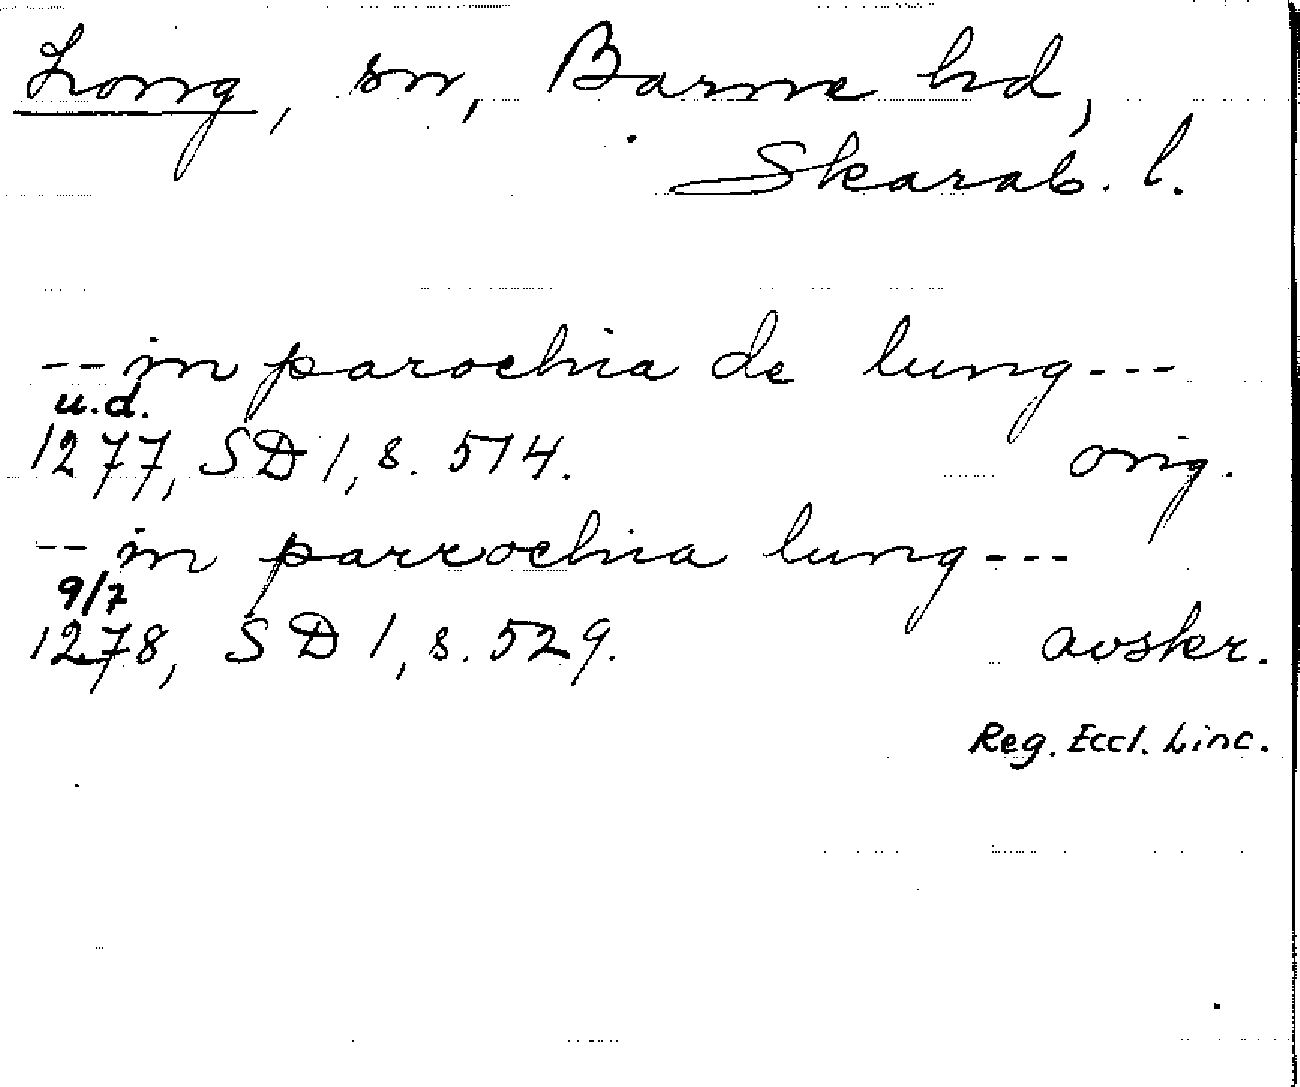 Long, sn, Barne hd,
Skarab. l.
-- in parochia de lung ---
u.d.
1277, SD 1, s. 514. orig.
-- in parrochia lung ---
9/7
1278, SD 1, s. 529. avskr.
Reg. Eccl. Linc.